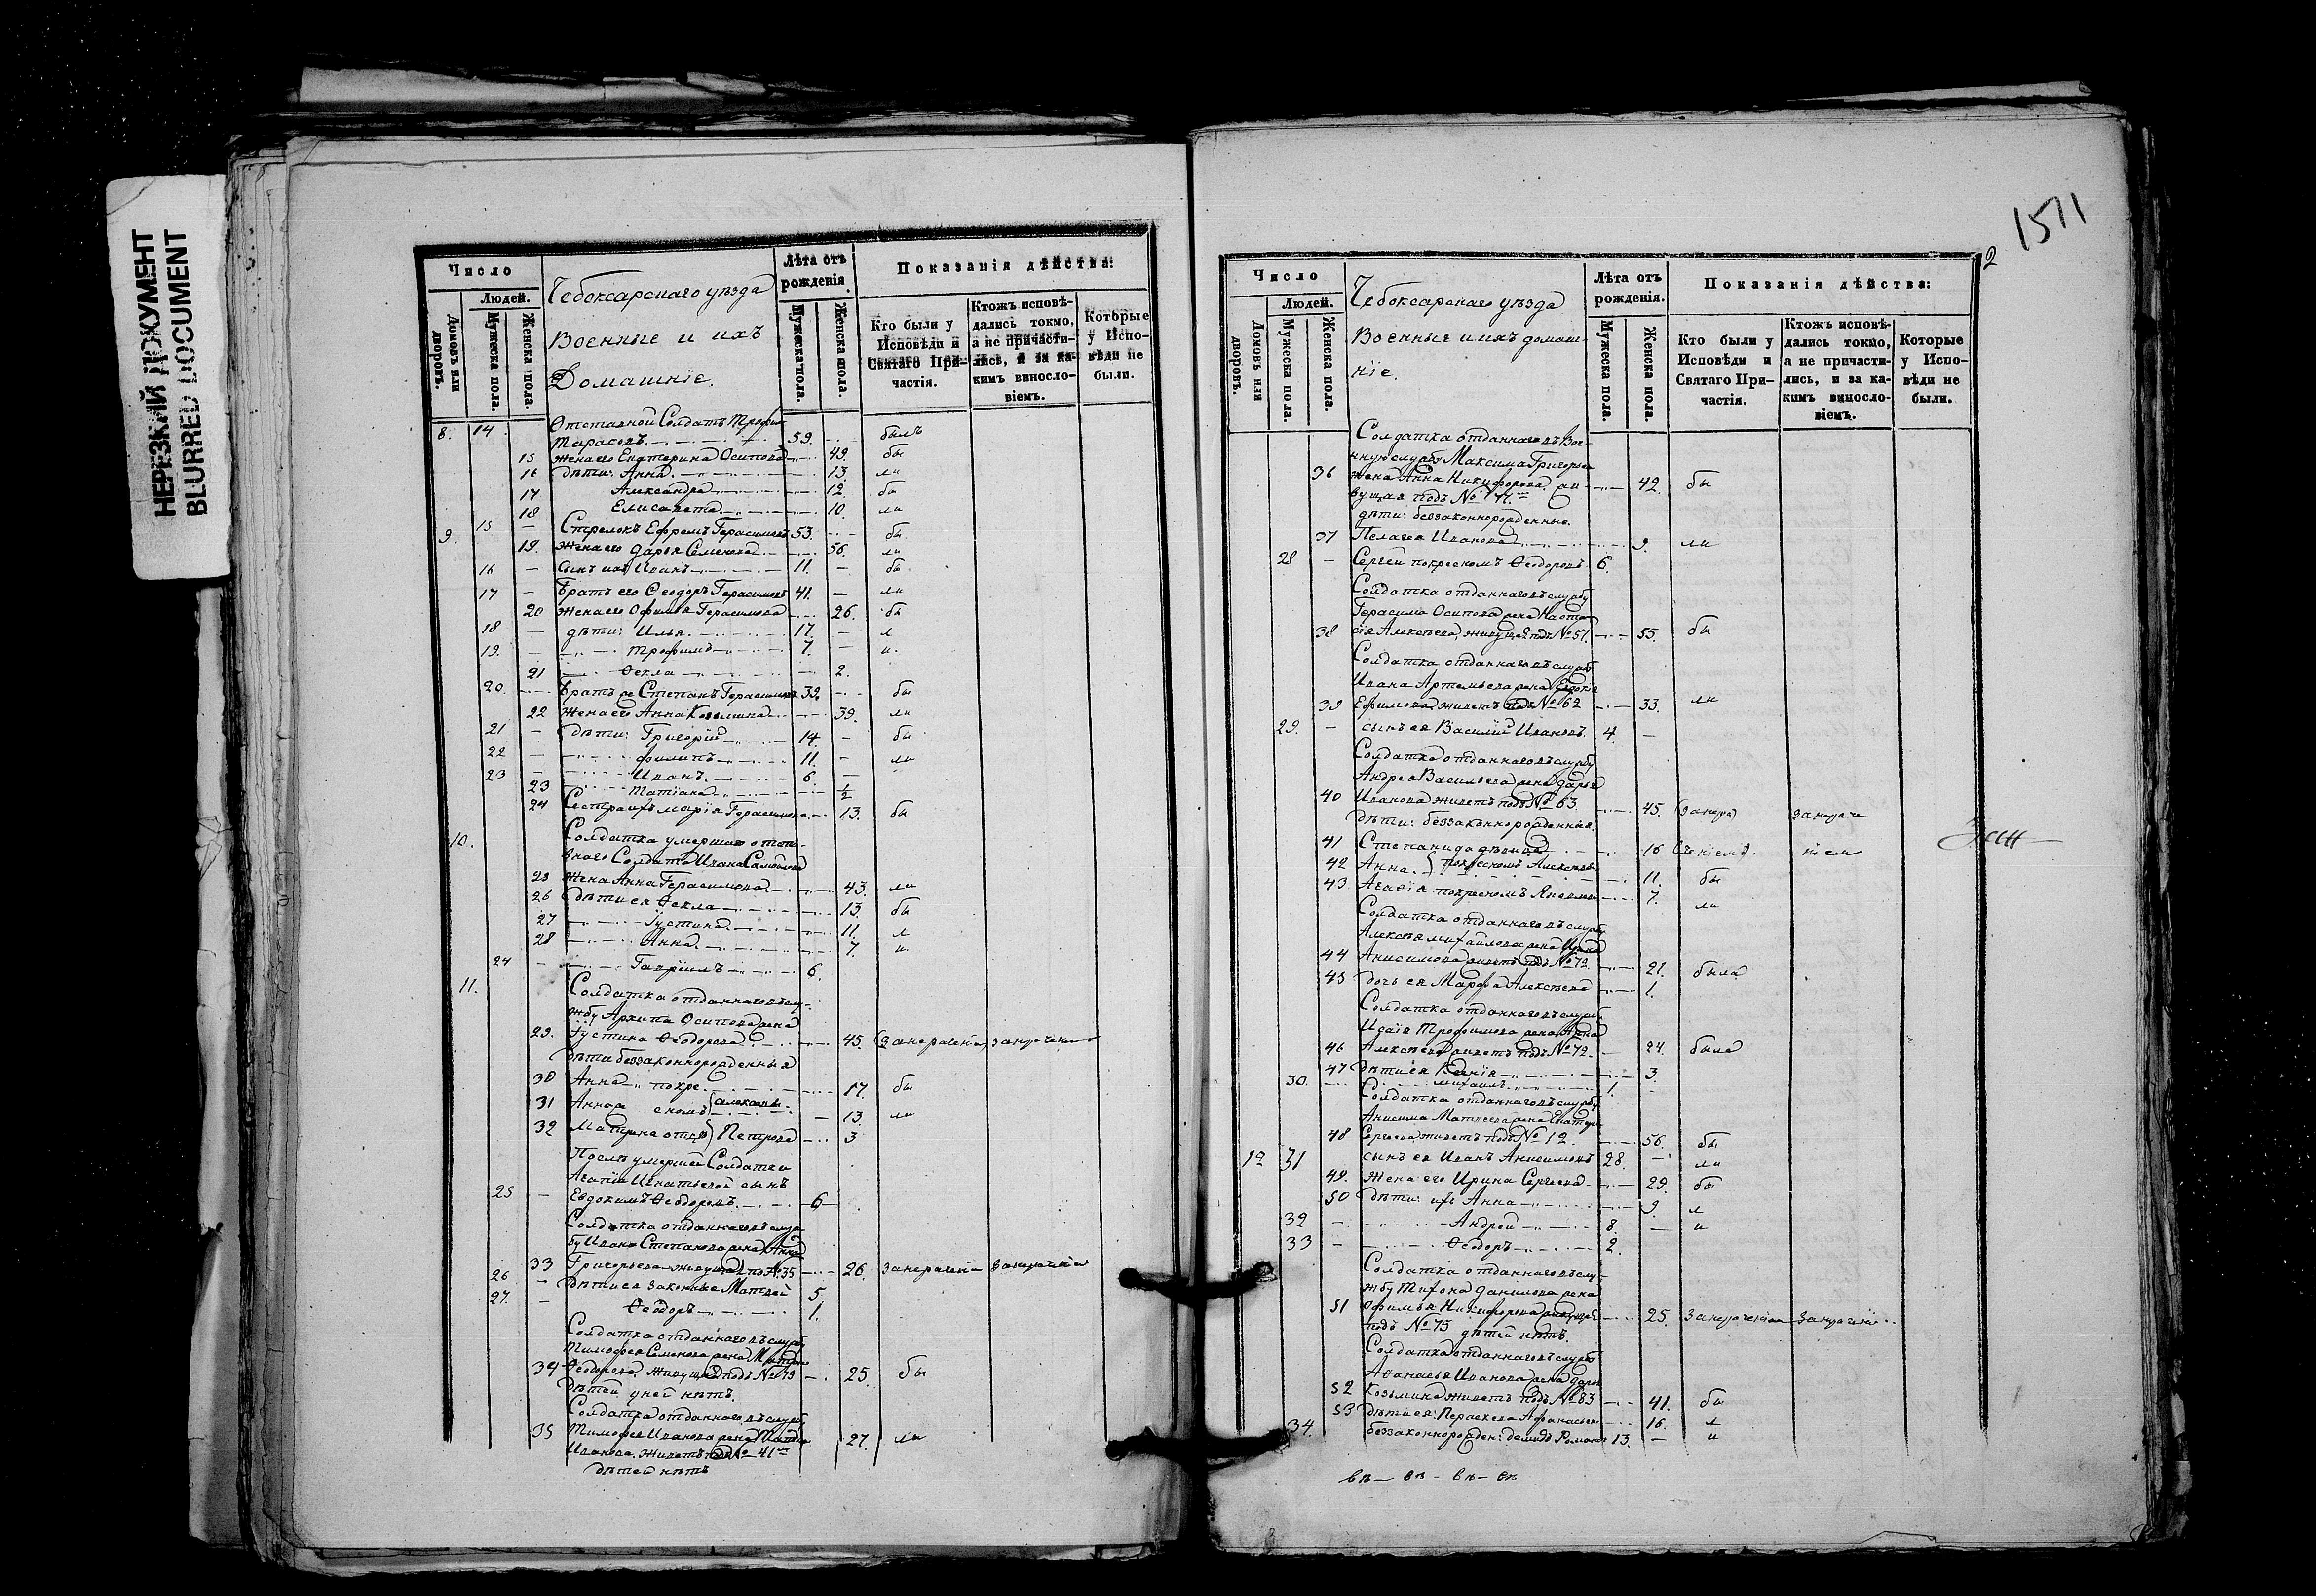 НЕРЕЗКИЙ ДОКУМЕНТ
BLURRED DOCUMENT
Число
Людей.
Домовъ или дворовъ.
Мужеска пола.
Женска пола.
Чебоксарскаго уѣзда
Военные и ихъ
Домашніе.
Лѣта отъ
рожденія.
Мужеска пола.
Женска пола.
Показанія дѣйства:
Кто были у
Исповѣди и
Святаго При-
частія.
Ктожъ исповѣ-
дались токмо,
а не причасти-
лись, и за ка-
кимъ винosло-
віемъ.
Которые
у Испо-
вѣди не
были.
8. 14 Отставной Солдатъ Трофим
Тарасовъ 59. былъ
15 жена его Екатерина Осипова 49. бы
16 дѣти: Анна 13. ли
17 Александра 12. бы
18 Елисавета 10. ли
9. 15 — Стрелокъ Ефремъ Герасимовъ 53. бы
19. Жена его Дарья Семенова 56. ли
16 — Сынъ ихъ Иванъ 11. — бы
17 — Братъ его Феодоръ Герасимовъ 41. — ли
20 жена его Офимья Герасимова 26. бы
18 — дѣти: Илья 17. — л
19. — Трофимъ 7. — и.
21 Ѳекла 2.
20. Братъ Степанъ Герасимовъ 39. бы
22 Жена его Анна Козьмина 39. ли
21 — дѣти: Григорій 14. — бы
22 — филипъ 11. — ли
23 — Иванъ 6 —
23 Татіана ½
24 Сестра ихъ Марія Герасимова 13. бы
10. Солдатка умершаго отста-
внаго Солдата Ивана Самойлова
25 жена Анна Герасимова 43. ли
26 дѣти ея Ѳекла 13. бы
27 Іустина 11. л
28 Анна 7. и
24 — Гавріилъ 6.
11. Солдатка отданнаго въ слу-
жбу Архипа Осипова жена
29. Іустина Ѳеодорова 45.
дѣти беззаконнорожденныя
30 Анна покре 17. бы
31 Анна сномъ 13. ли
32 Матрена Петрова 3
Послѣ умершей Солдатки
Агапіи Игнатьевой сынъ
25 — Евдокимъ Ѳеодоровъ 6
Солдатка отданнаго въ служ-
бу Ивана Степанова жена Анна
33 Григорьева живущая по № 35 26.
26 — Дѣти ея законные Матвей 5.
27. — Ѳеодоръ 1.
Солдатка отданнаго въ службу
Тимофея Семенова жена
34 Ѳеодорова живущая подъ № 79 25. бы
Дѣтей у ней нѣтъ.
Солдатка отданнаго въ службу
35 Тимофея Иванова жена 27. ли
Иванова живетъ подъ № 41
дѣтей нѣтъ
1511
2
Число
Людей.
Домовъ или дворовъ.
Мужеска пола
Женска пола.
Чебоксарскаго уѣзда
Военные и ихъ домаш-
ніе.
Лѣта отъ
рожденія.
Мужеска пола.
Женска пола.
Показанія дѣйства:
Кто были у
Исповѣди и
Святаго При-
частія.
Ктожъ исповѣ-
дались токмо,
а не причасти-
лись, и за ка-
кимъ винosло-
віемъ.
Которые
у Испо-
вѣди не
были.
Солдатка отданнаго въ Вое-
нную службу Максима Григорьева
36 жена Анна Никифорова жи- 42. бы
вущая подъ №
дѣти: беззаконнорожденные.
37 Пелагея Иванова 9. ли
28 — Сергей покресномъ Ѳеодоровъ 6.
Солдатка отданнаго въ службу
Герасима Осипова жена Наста-
38 сія Алексѣева, живущая подъ № 57. 55. бы
Солдатка отданнаго въ службу
Ивана Артемьева жена
39 Ефимова живетъ подъ № 62 33. ли
29. — сынъ ея Василій Ивановъ. 4. —
Солдатка отданнаго въ службу
Андрея Васильева жена Дарья
40 Иванова живетъ подъ № 63. 45.
дѣти: беззаконнорожденныя.
41 Степанида дѣвица 16
42 Анна покресномъ 11. бы
43 7. ли
Солдатка отданнаго въ службу
Алексѣя Михайлова жена Ирина
44 Анисимова живетъ подъ № 72. 21. была
45 Дочь ея Марфа Алексѣева 1.
Солдатка отданнаго въ службу
Трофимова жена Анна
46 Алексѣева живетъ подъ № 72. 24. была
47 Дѣти ея 3.
30. Михаилъ 1.
Солдатка отданнаго въ службу
Анисима Матвеева жена Екатери
48 Сергеева живетъ подъ № 12. 56. бы
12 31 сынъ ея Иванъ Анисимовъ 28. — ли
49. Жена его Ирина Сергеева 29. бы
50 Дѣти: ихъ Анна 9. л
32 — Андрей 8. — и
33 — Ѳеодоръ 2.
Солдатка отданнаго въ слу-
жбу Тихона Данилова жена
51 Офимья Никифорова живущая 25.
подъ № 75 дѣтей нѣтъ.
Солдатка отданнаго въ службу
Аѳанасья Иванова жена Дарья
52 Козьмина живетъ подъ № 83 41. бы
53 Дѣти ея: Параскева Афанасьев 16. л
34. беззаконнорожден: Демидъ Романов 13. — и